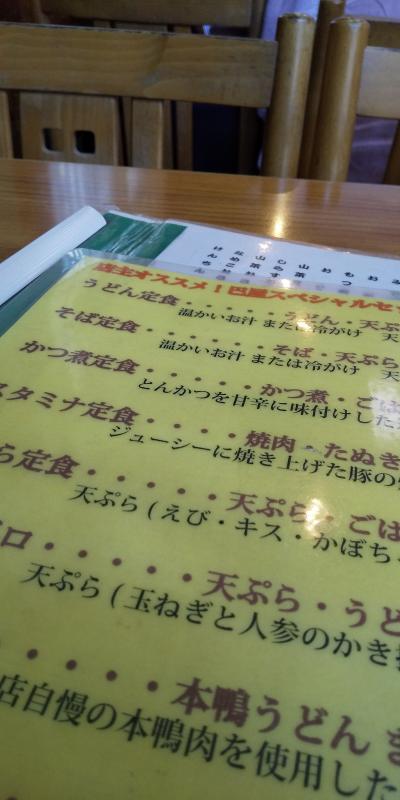 店主オススメ！巴屋スペシャルセッ
うどん定食・・・・・・・うどん・天ぷ
温かいお汁 または冷がけ 天
そば定食・・・・・・・そば・天ぷら
温かいお汁 または冷がけ 天
かつ煮定食・・・・・・かつ煮・ごは
とんかつを甘辛に味付けした
スタミナ定食・・・・・焼肉・たぬき
ジューシーに焼き上げた豚の
ら定食・・・・・・天ぷら・ごは
天ぷら（えび・キス・かぼち
ロ・・・・・・天ぷら・うど
天ぷら（玉ねぎと人参のかき
・・・・・本鴨うどん
店自慢の本鴨肉を使用した